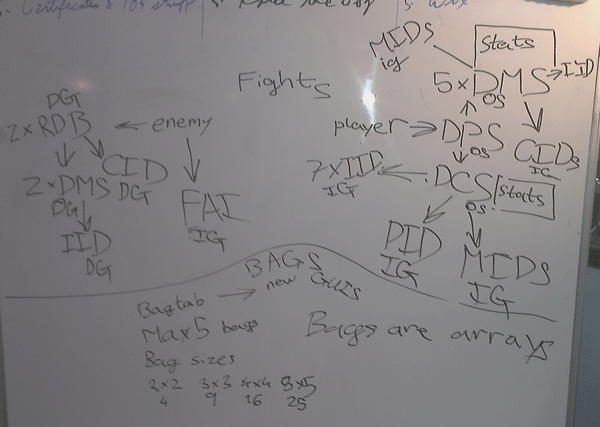 Certificates & IOS stuff
MIDs
ig
Stats
Fights
5 x DMS → IID
OS
DG
2 x RDB ← enemy
player → DPS
OS
CIDs
IG
CID
DG
7 x IID ← DCS
IG
OS
Stats
2 x DMS
DG
FAI
IG
IID
DG
PID
IG
MIDs
IG
BAGS
Bagtab → new GUIs
Max 5 bags
Bags are arrays
Bag sizes
2x2 3x3 4x4 5x5
4 9 16 25